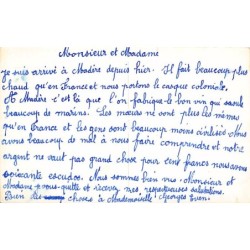 Monsieur et Madame
je suis arrivé à Madère depuis hier. Il fait beaucoup plus
chaud qu'en France et nous portons le casque coloniale.
A Madère c'est là que l'on fabrique le bon vin qui saoule
beaucoup de marins. Les mœurs ne sont plus les mêmes
qu'en France et les gens sont beaucoup moins civilisés Nous
avons beaucoup de mal à nous faire comprendre et notre
argent ne vaut pas grand chose pour cent francs nous avons
soixante escudos. Nous sommes bien nous. Monsieur et
Madame je vous quitte et recevez mes respectueuses salutations.
Bien des choses à Mademoiselle Georges Even.